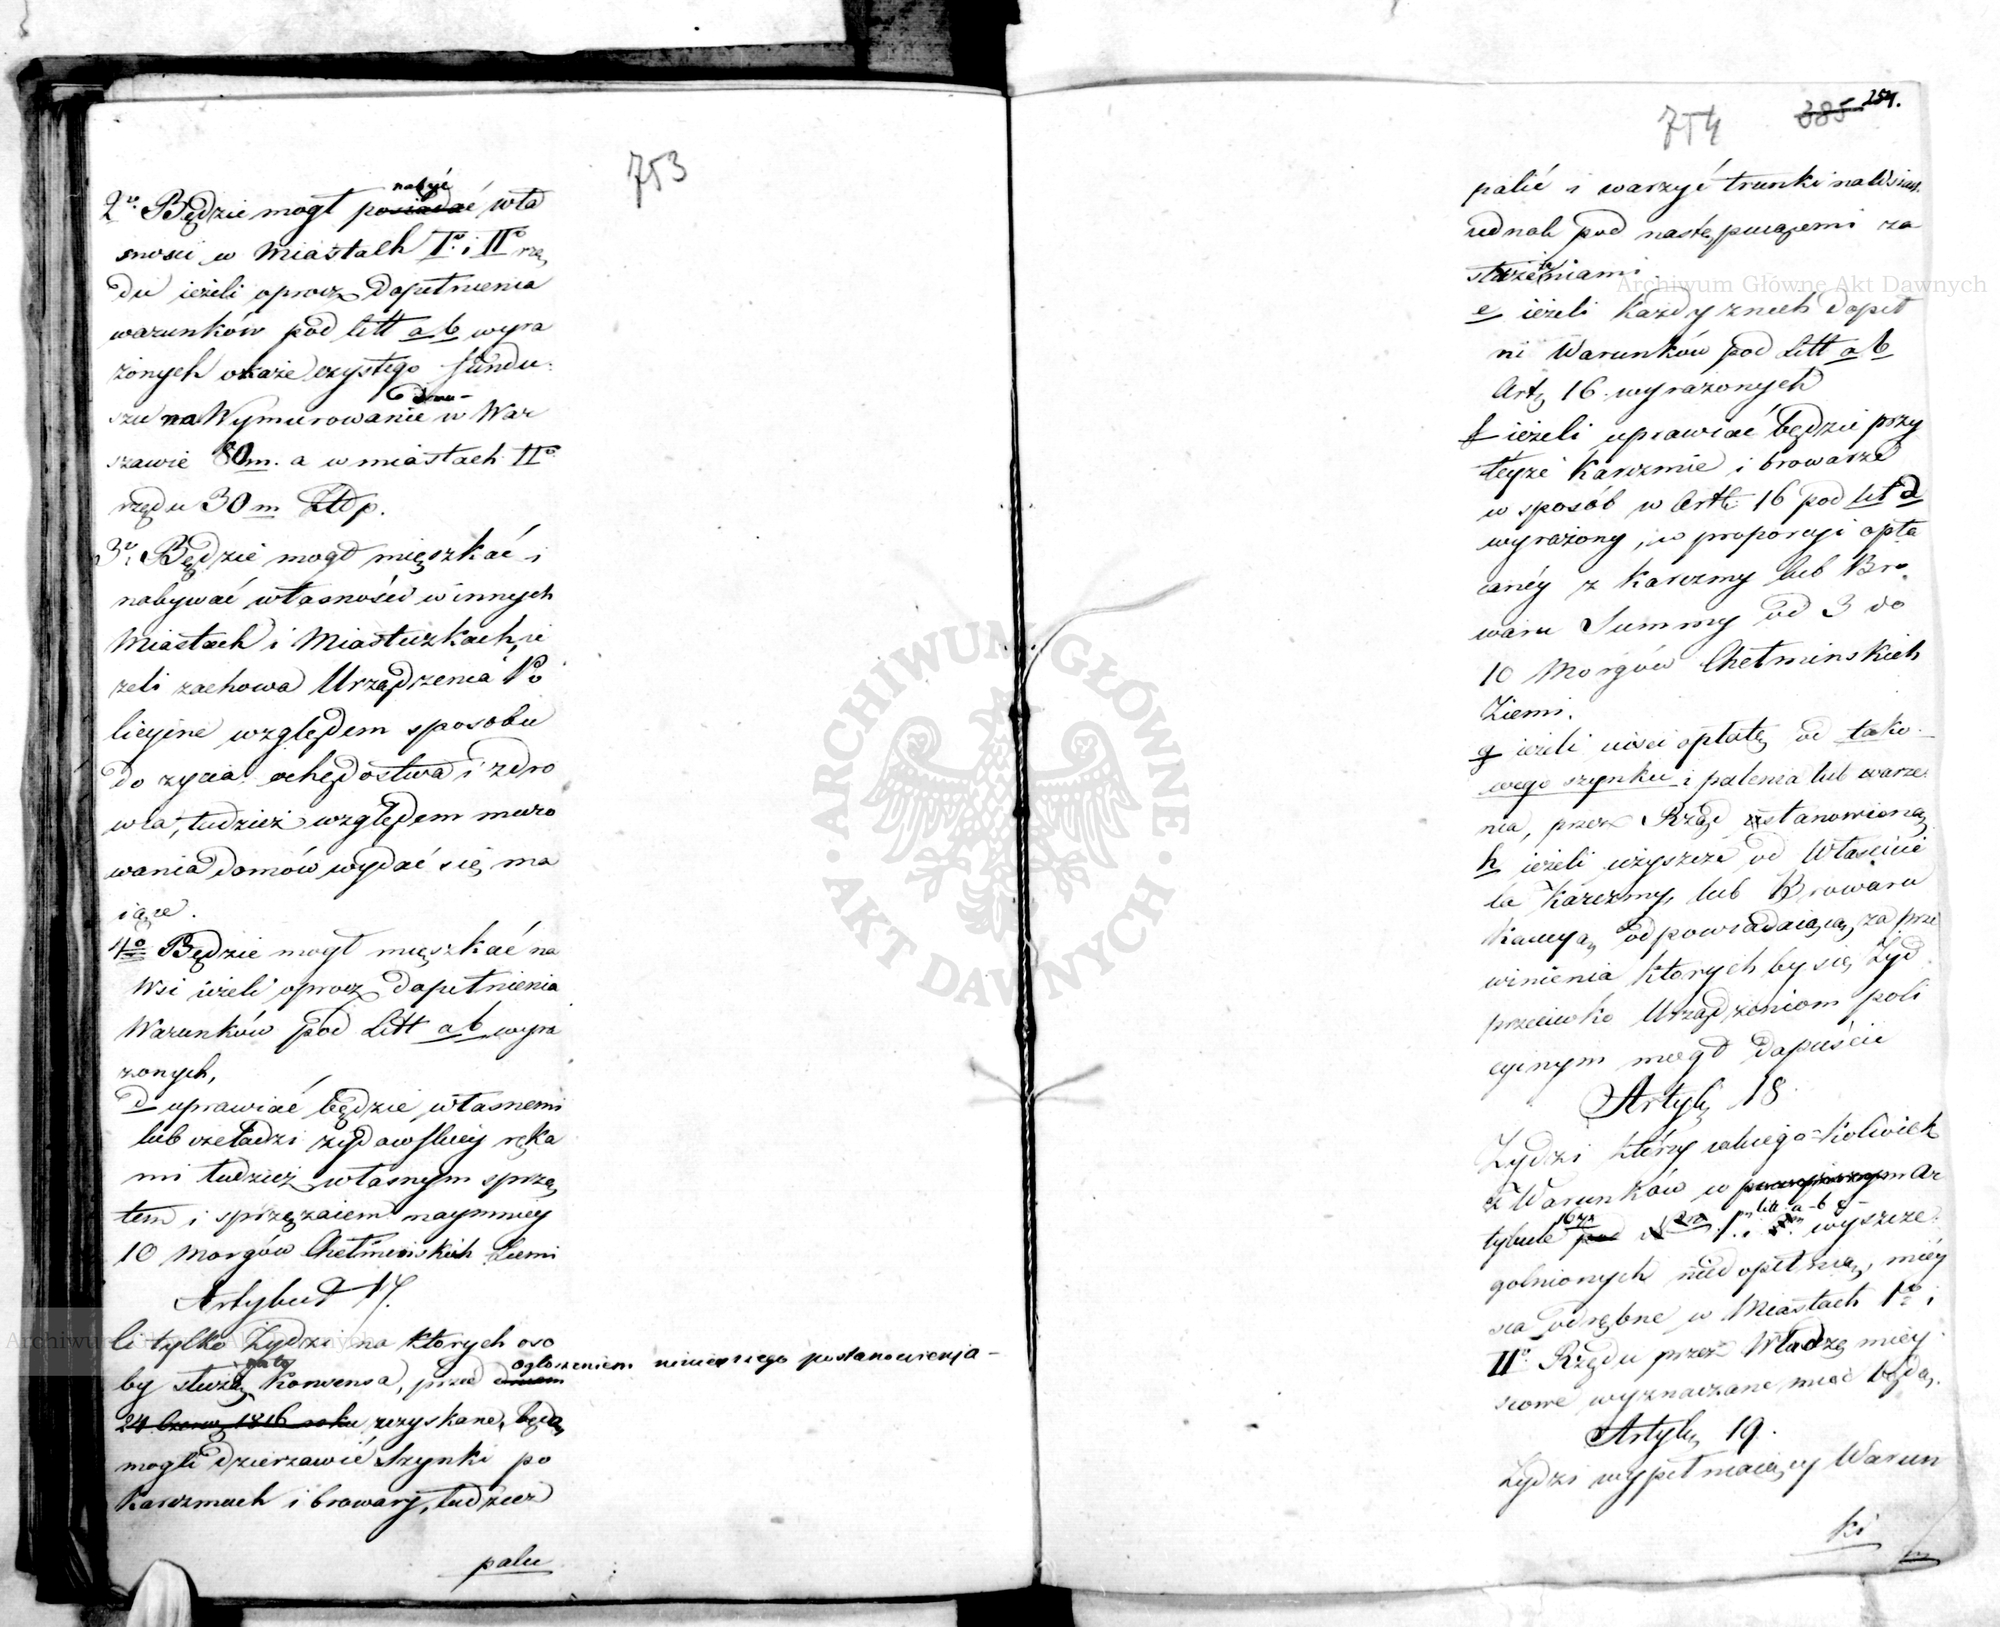 753
2o. Będzie mogł posiadać nabyć wła
snosci w Miastach Io. i IIo rzę
du ieżeli oprocz dopełnienia
warunków pod litt a b wyra
żonych okaże czystego fundu-
szu na Wymurowanie Domu w War
szawie 80m. a w miastach IIo
rzędu 30m Złp.
3o. Będzie mogł mięszkać i
nabywać własności w innych
Miastach i Miasteczkach, ie
żeli zachowa Urządzenia Po
licyine względem sposobu
do zycia ochędostwa i zdro
wia, tudzież względem muro
wania domów wydać się ma
iące.
4o Będzie mogł mięszkać na
Wsi ieżeli oprocz dopełnienia
Warunków pod Litt a b wyra
żonych,
d uprawiać będzie własnemi
lub czeladzi żydowskiey ręka
mi tudzież własnym sprzę
tem i sprzężaiem naymniey
10 Morgów Chełmińskich Ziemi
Artykuł 17.
Li tylko Żydzi na których oso
by służą Konsensa, przed dniem ogłoszeniem ninieyszego postanowienia
24 Czerw 1816 roku zyskane, będą
mogli dzierżawić Szynki po
Karczmach i browary, tudzież
palić
754 385 254.
palić i warzyć trunki na Wsiach
iednak pod następuiącemi za
strzeżeniami
e ieżeli każdy z nich dopeł
ni Warunków pod Litt a b
Artk 16 wyrażonych
f ieżeli uprawiać będzie przy
teyże Karczmie i browarze
w sposób w Artk 16 pod lit d
wyrażony, w proporcyi opła
canéy z Karczmy lub Bro
waru Summy od 3 do
10 Morgów Chełminskich
Ziemi.
g ieżeli uisci opłatę od tako-
wego szynku i palenia lub warze-
nia, przez Rząd ustanowioną
h ieżeli uzyszcze od Właścicie
la Karczmy, lub Browaru
Kaucyą odpowiadaiącą, za prze
winienia których by się Żyd
przeciwko Urządzeniom poli
cyinym mógł dopuścić
Artyk 18.
Żydzi którzy iakiego-kolwiek
z Warunków w powyższym Ar
tykule 16ym pod litt: a-b wyszcze
golnionych niedopełnią, miey
sca odrębne w Miastach Io i
IIo Rzędu przez Władzę miey
scowe wyznaczane mieć będą.
Artyk 19.
Żydzi wypełniaiący Warun
ki